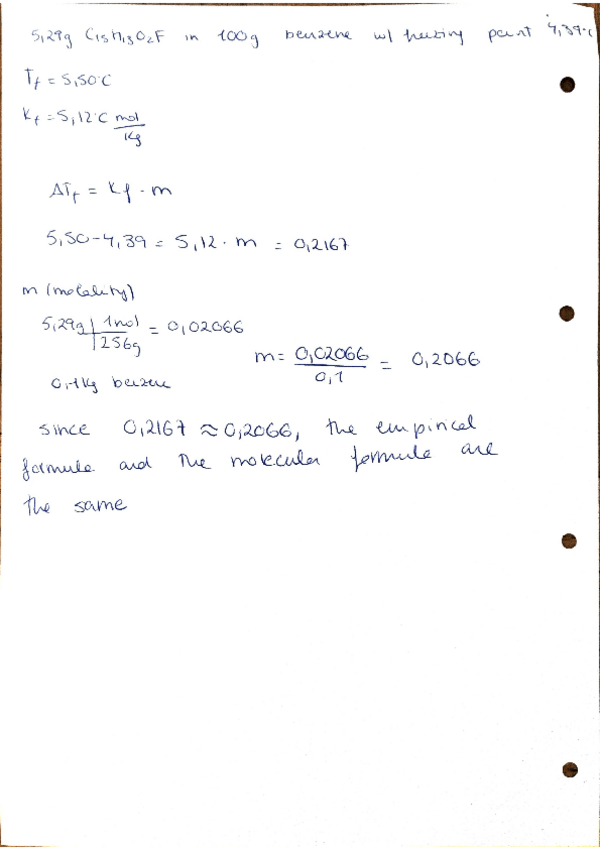 5,29g C15H13O2F in 100g benzene w/ freezing point 4,39°C
Tf = 5,50°C
Kf = 5,12°C mol/Kg
ΔTf = Kf · m
5,50-4,39 = 5,12 · m = 0,2167
m (molality)
5,29g | 1mol / 256g = 0,02066
m = 0,02066 / 0,1 = 0,2066
0,1kg benzene
since 0,2167 ≈ 0,2066, the empirical
formula and the molecular formula are
the same